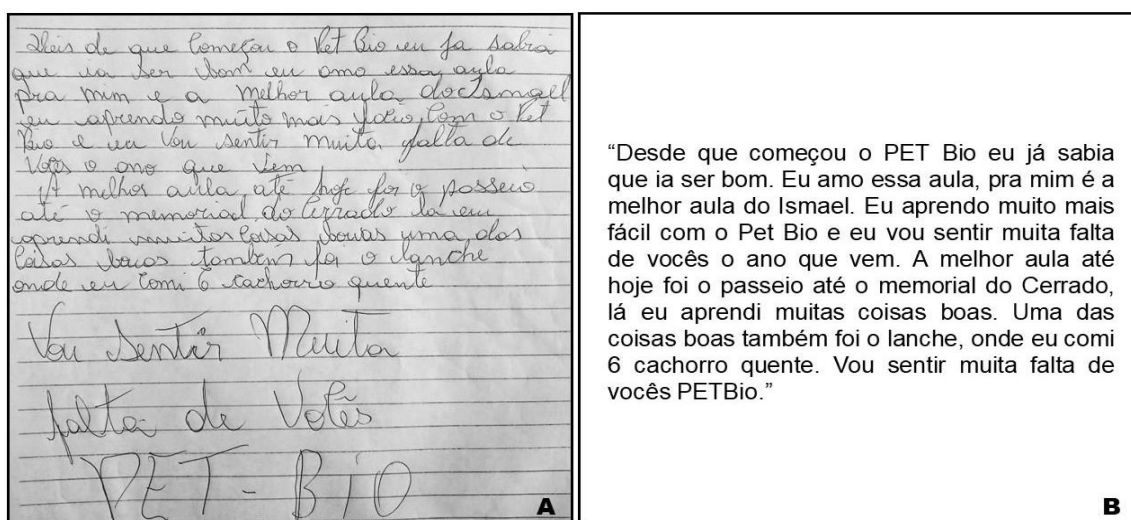 de que começou o Pet Bio eu ja sabia
que ia ser bom eu amo essa aula
pra mim e a melhor aula do Ismael
eu aprendo muito mais com o Pet
Bio e eu vou sentir muita falta de
voces o ano que vem
A melhor aula até hoje foi o passeio
até o memorial do Cerrado la eu
aprendi muitas coisas boas uma das
coisas boas tambem foi o lanche
onde eu comi 6 cachorro quente
Vou sentir Muita
falta de Vocês
PET-BIO
A
“Desde que começou o PET Bio eu já sabia
que ia ser bom. Eu amo essa aula, pra mim é a
melhor aula do Ismael. Eu aprendo muito mais
fácil com o Pet Bio e eu vou sentir muita falta
de vocês o ano que vem. A melhor aula até
hoje foi o passeio até o memorial do Cerrado,
lá eu aprendi muitas coisas boas. Uma das
coisas boas também foi o lanche, onde eu comi
6 cachorro quente. Vou sentir muita falta de
vocês PETBio.”
B